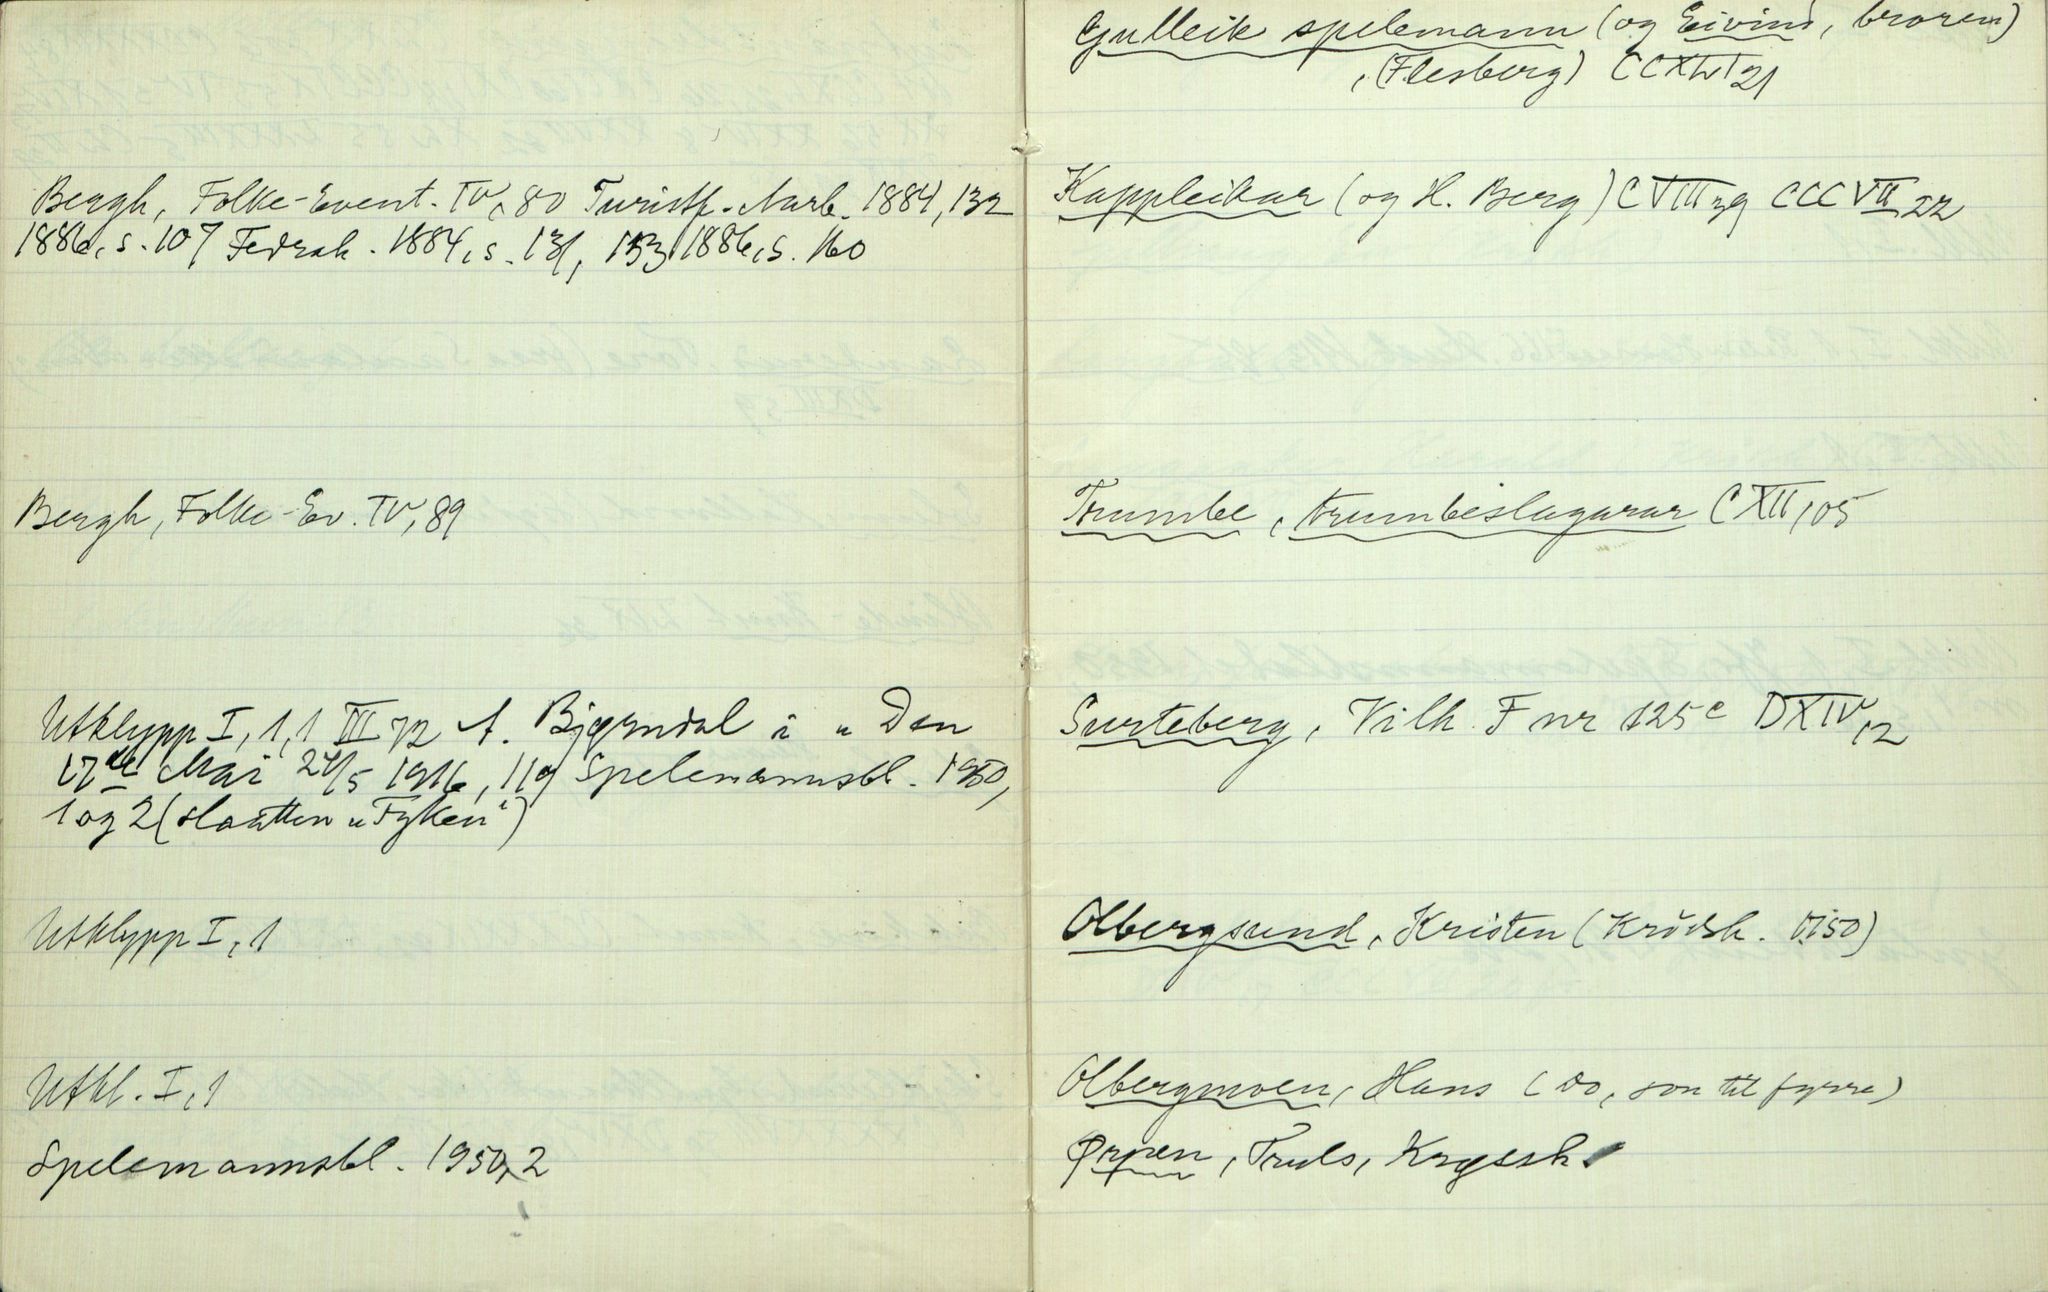 Bergh, Folke-Event. IV, 80 Turistf. Aarb. 1884, 132
1886, s. 107 Fedrah. 1884, s. 131, 153 1886, s. 160
Bergh, Folke-Ev. IV, 89
Utklypp I, 1, 1 III 72 A. Bjørndal i „Den
17de Mai 24/5 1916, 119 Spelemannsbl. 1950,
1 og 2 (slaatten „Fyken")
Utklypp I, 1
Utkl. I, 1
Spelemannsbl. 1950, 2
Gulleik spelemann (og Eivind, broren)
(Flesberg) CCXLVI 21
Kappleikar (og H. Berg) CVIII 79 CCCVII 22
Trumbe, trumbeslagarar CXII, 105
Surteberg, Vilh. F nr 125c DXIV, 12
Olbergsund, Kristen (Krødsh. 1750)
Olbergmoen, Hans (do, son til fyrre)
Ørpen, Truls, Kryssh.